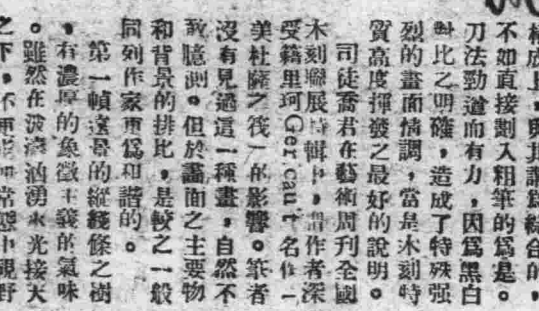 構成上，與其謂爲綜合的，
不如直接劃入粗筆的爲是。
刀法勁遒而有力，因爲黑白
對比之明確，造成了特殊强
烈的畫面情調，當是木刻特
質高度揮發之最好的說明。
司徒喬君在藝術周刊全國
木刻聯展特輯中，謂作者深
受籍里珂Gericaut名作「
美杜薩之筏」的影響。筆者
沒有見過這一種畫，自然不
敢臆測。但於畫面之主要物
和背景的排比，是較之一般
同列作家更爲和諧的。
第一幀遠景的縱綫條之樹
，有濃厚的象徵主義的氣味
。雖然在波濤汹湧水光接天
之下，不 能 常態中視野